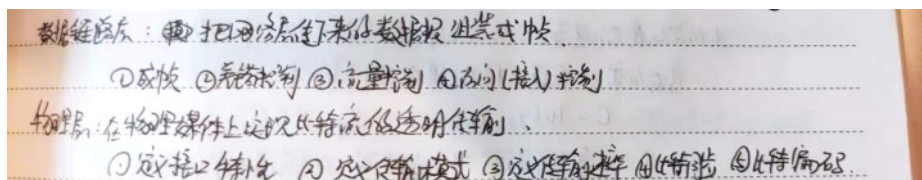 数据链路层：把网络层传下来的数据报组装成帧.
①成帧 ②差错控制 ③流量控制 ④访问(接入)控制
物理层：在物理媒体上实现比特流的透明传输.
①定义接口特性 ②定义传输模式 ③定义传输速率 ④比特同步 ⑤比特编码.